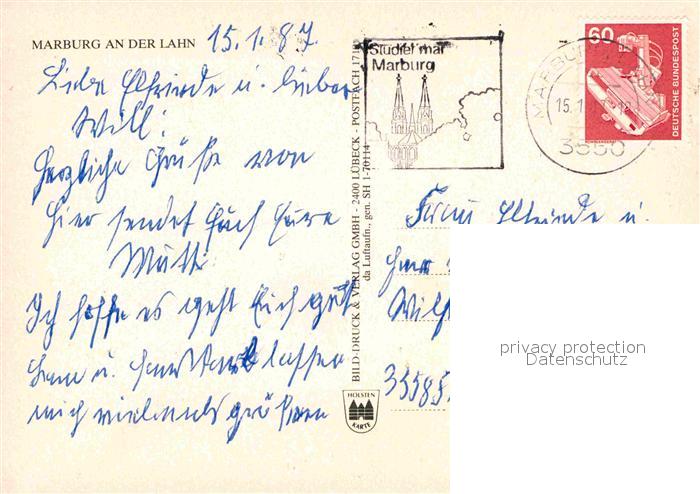 MARBURG AN DER LAHN 15.1.87
Liebe Elfriede u. lieber
Will!
Herzliche Grüße von
hier sendet Euch Eure
Mutti
Ich hoffe es geht Euch gut
u. lassen
mich vielmals grüßen
BILD-DRUCK & VERLAG GMBH - 2400 LÜBECK - POSTFACH 1710
da Luftaufn., gen. SH 1-70114
HOLSTEN
KARTE
Studier mal
Marburg
MARBU
15.1.
3550
60
DEUTSCHE BUNDESPOST
Frau Elfriede u.
Herr
Wilh
privacy protection
Datenschutz